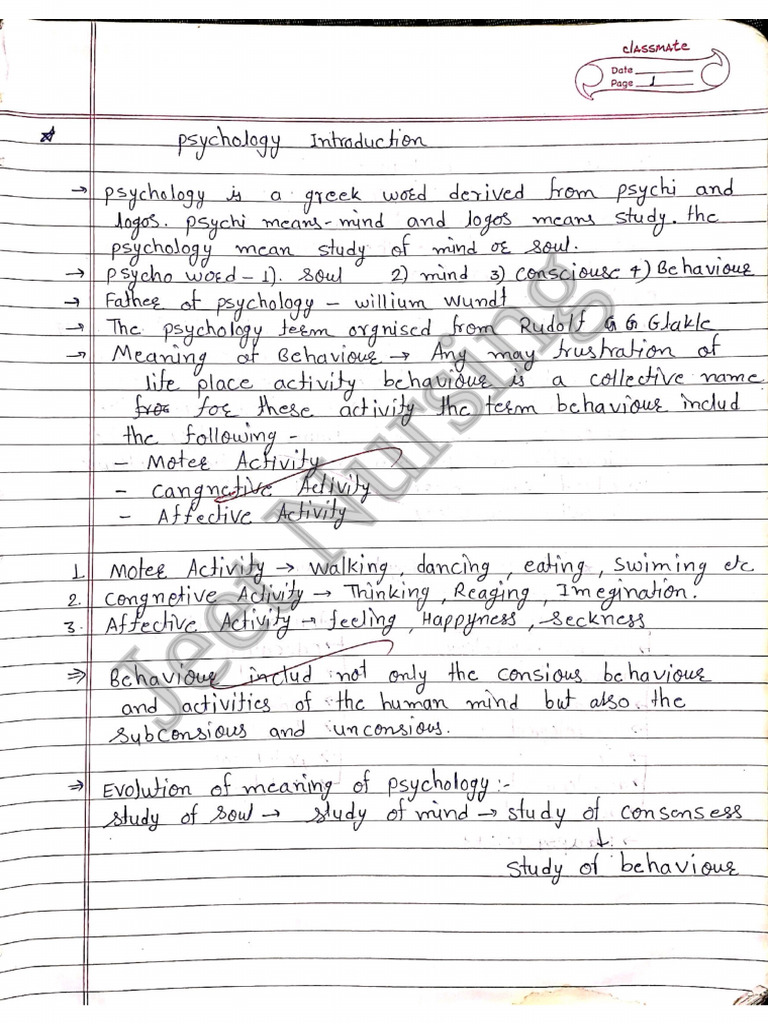 classmate
Date
Page 1
Psychology Introduction
→ Psychology is a greek word derived from psychi and
logos. psychi means-mind and logos means study. the
psychology mean study of mind or soul.
→ Psycho word - 1). soul 2) mind 3) Consciouse 4) Behaviour
→ Father of psychology - willium Wundt
→ The psychology term orgnised from Rudolf G G Glakle
→ Meaning of Behaviour → Any may frustration of
life place activity behaviour is a collective name
for these activity the term behaviour includ
the following -
- Moter Activity
- Cangnetive Activity
- Affective Activity
1. Moter Activity → walking, dancing, eating, Swiming etc
2. Congnetive Activity → Thinking, Reaging, Imegination.
3. Affective Activity → feeling, Happyness, Seckness
⇒ Behaviour includ not only the consious behaviour
and activities of the human mind but also the
subconsious and unconsious.
⇒ Evolution of meaning of psychology :-
study of soul → study of mind → study of consensess
↓
study of behaviour
Jeet Nursing